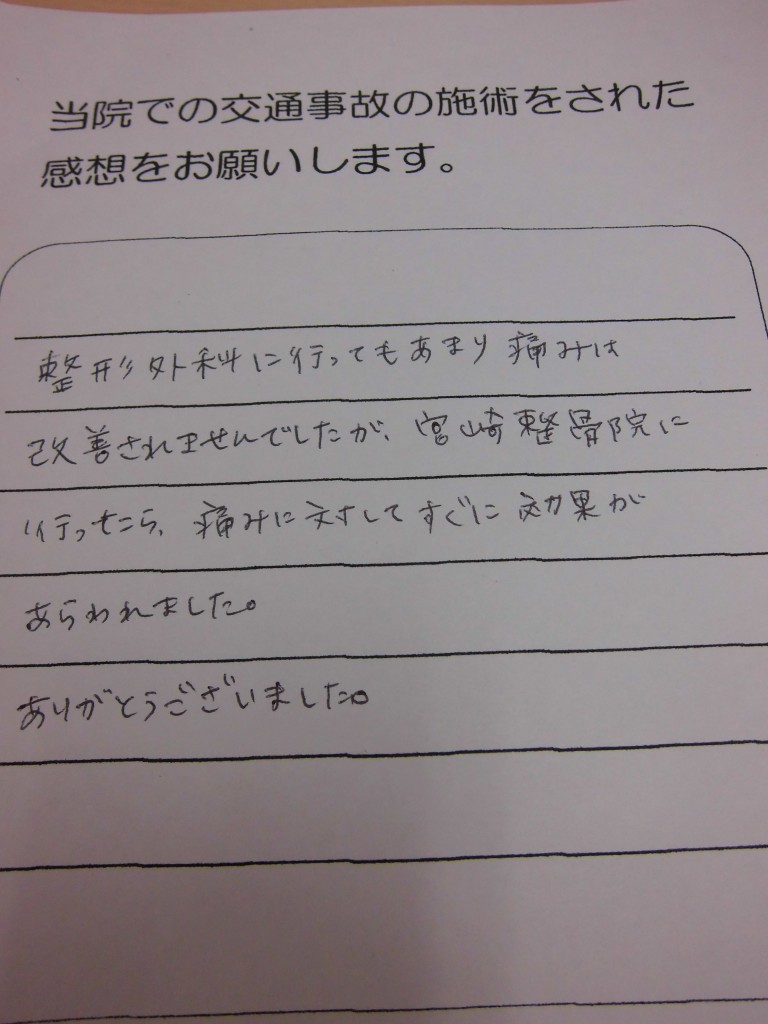 当院での交通事故の施術をされた
感想をお願いします。
整形外科に行ってもあまり痛みは
改善されませんでしたが、宮崎整骨院に
行ったら、痛みに対してすぐに効果が
あらわれました。
ありがとうございました。